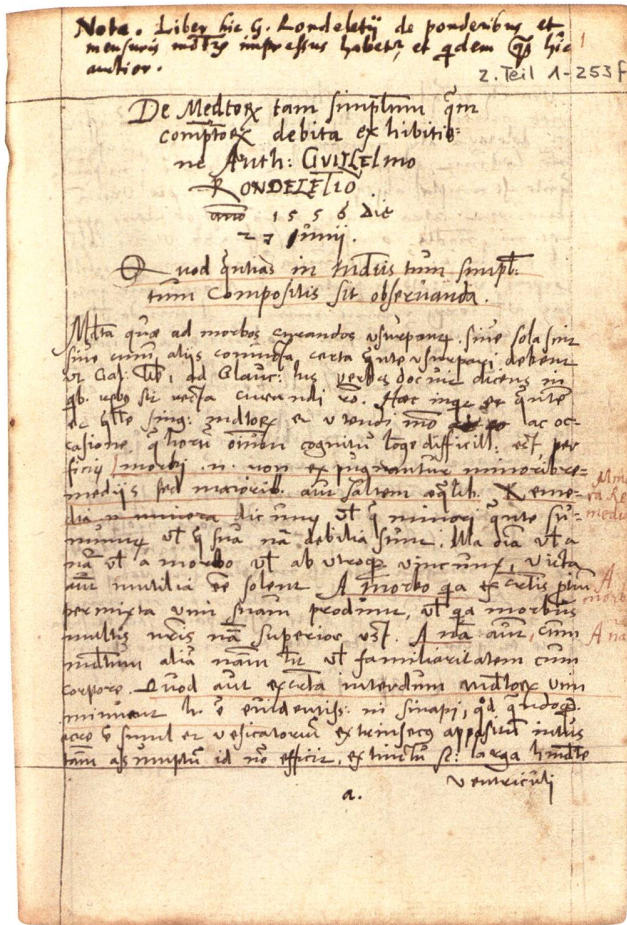 Nota. Liber hic G. Rondeletij de ponderibus et
mensuris impressus habetr et qdem hic
auctior.
1
2. Teil 1-253 f
De Medtorx tam simplium qm
comptorx debita exhibitio=
ne Auth: GVILELMO
RONDELETIO.
año 1556 die
27 Iunij.
Quod qntitas in mdtis tum simpl:
tum compositis sit observanda.
Mlta quæ ad morbos curandos vsurpantr. sive sola sint
sive cum alijs coniuncta, certa qntte vsurpari debent
vt Gal: lib, 1 ad Glauc: his verbis docuit dicens in
qb. recta curandi ro. Hæc et qntte
et qlte sing: mdtorx et vtendi mo ac oc=
casione, horū oīum cognitū longe difficill: est per
morbi .n. non expugnantur minoribre=
medijs sed maiorib. aut saltem æqlib. Reme=
dia minora dicuntr vl q minori qntte su=
muntr vl q sua nā debilia sunt. Illa oīa vl a
nā vl a morbo vl ab utroqz vincuntr, victa
aut inutilia ēē solent. A morbo qa excrtis
permixta vim suam produnt, vl qa morbus
multis nris nā superior est. A nā aut, cum
mdtum alia nam vl familiaritatem cum
corpore. Quod aut excrta interdum mdtorx vim
minuent h. e evidentiss: in sinapi, qd
acre e simul et vesicatoriū extrinsecq appositū intus
tām assumptū id nō efficit, extinctū sc: larga
ventriculi
a.
Re
medi
A
morb
A na